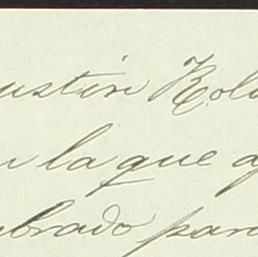 ustin Rol
la que a
brado para